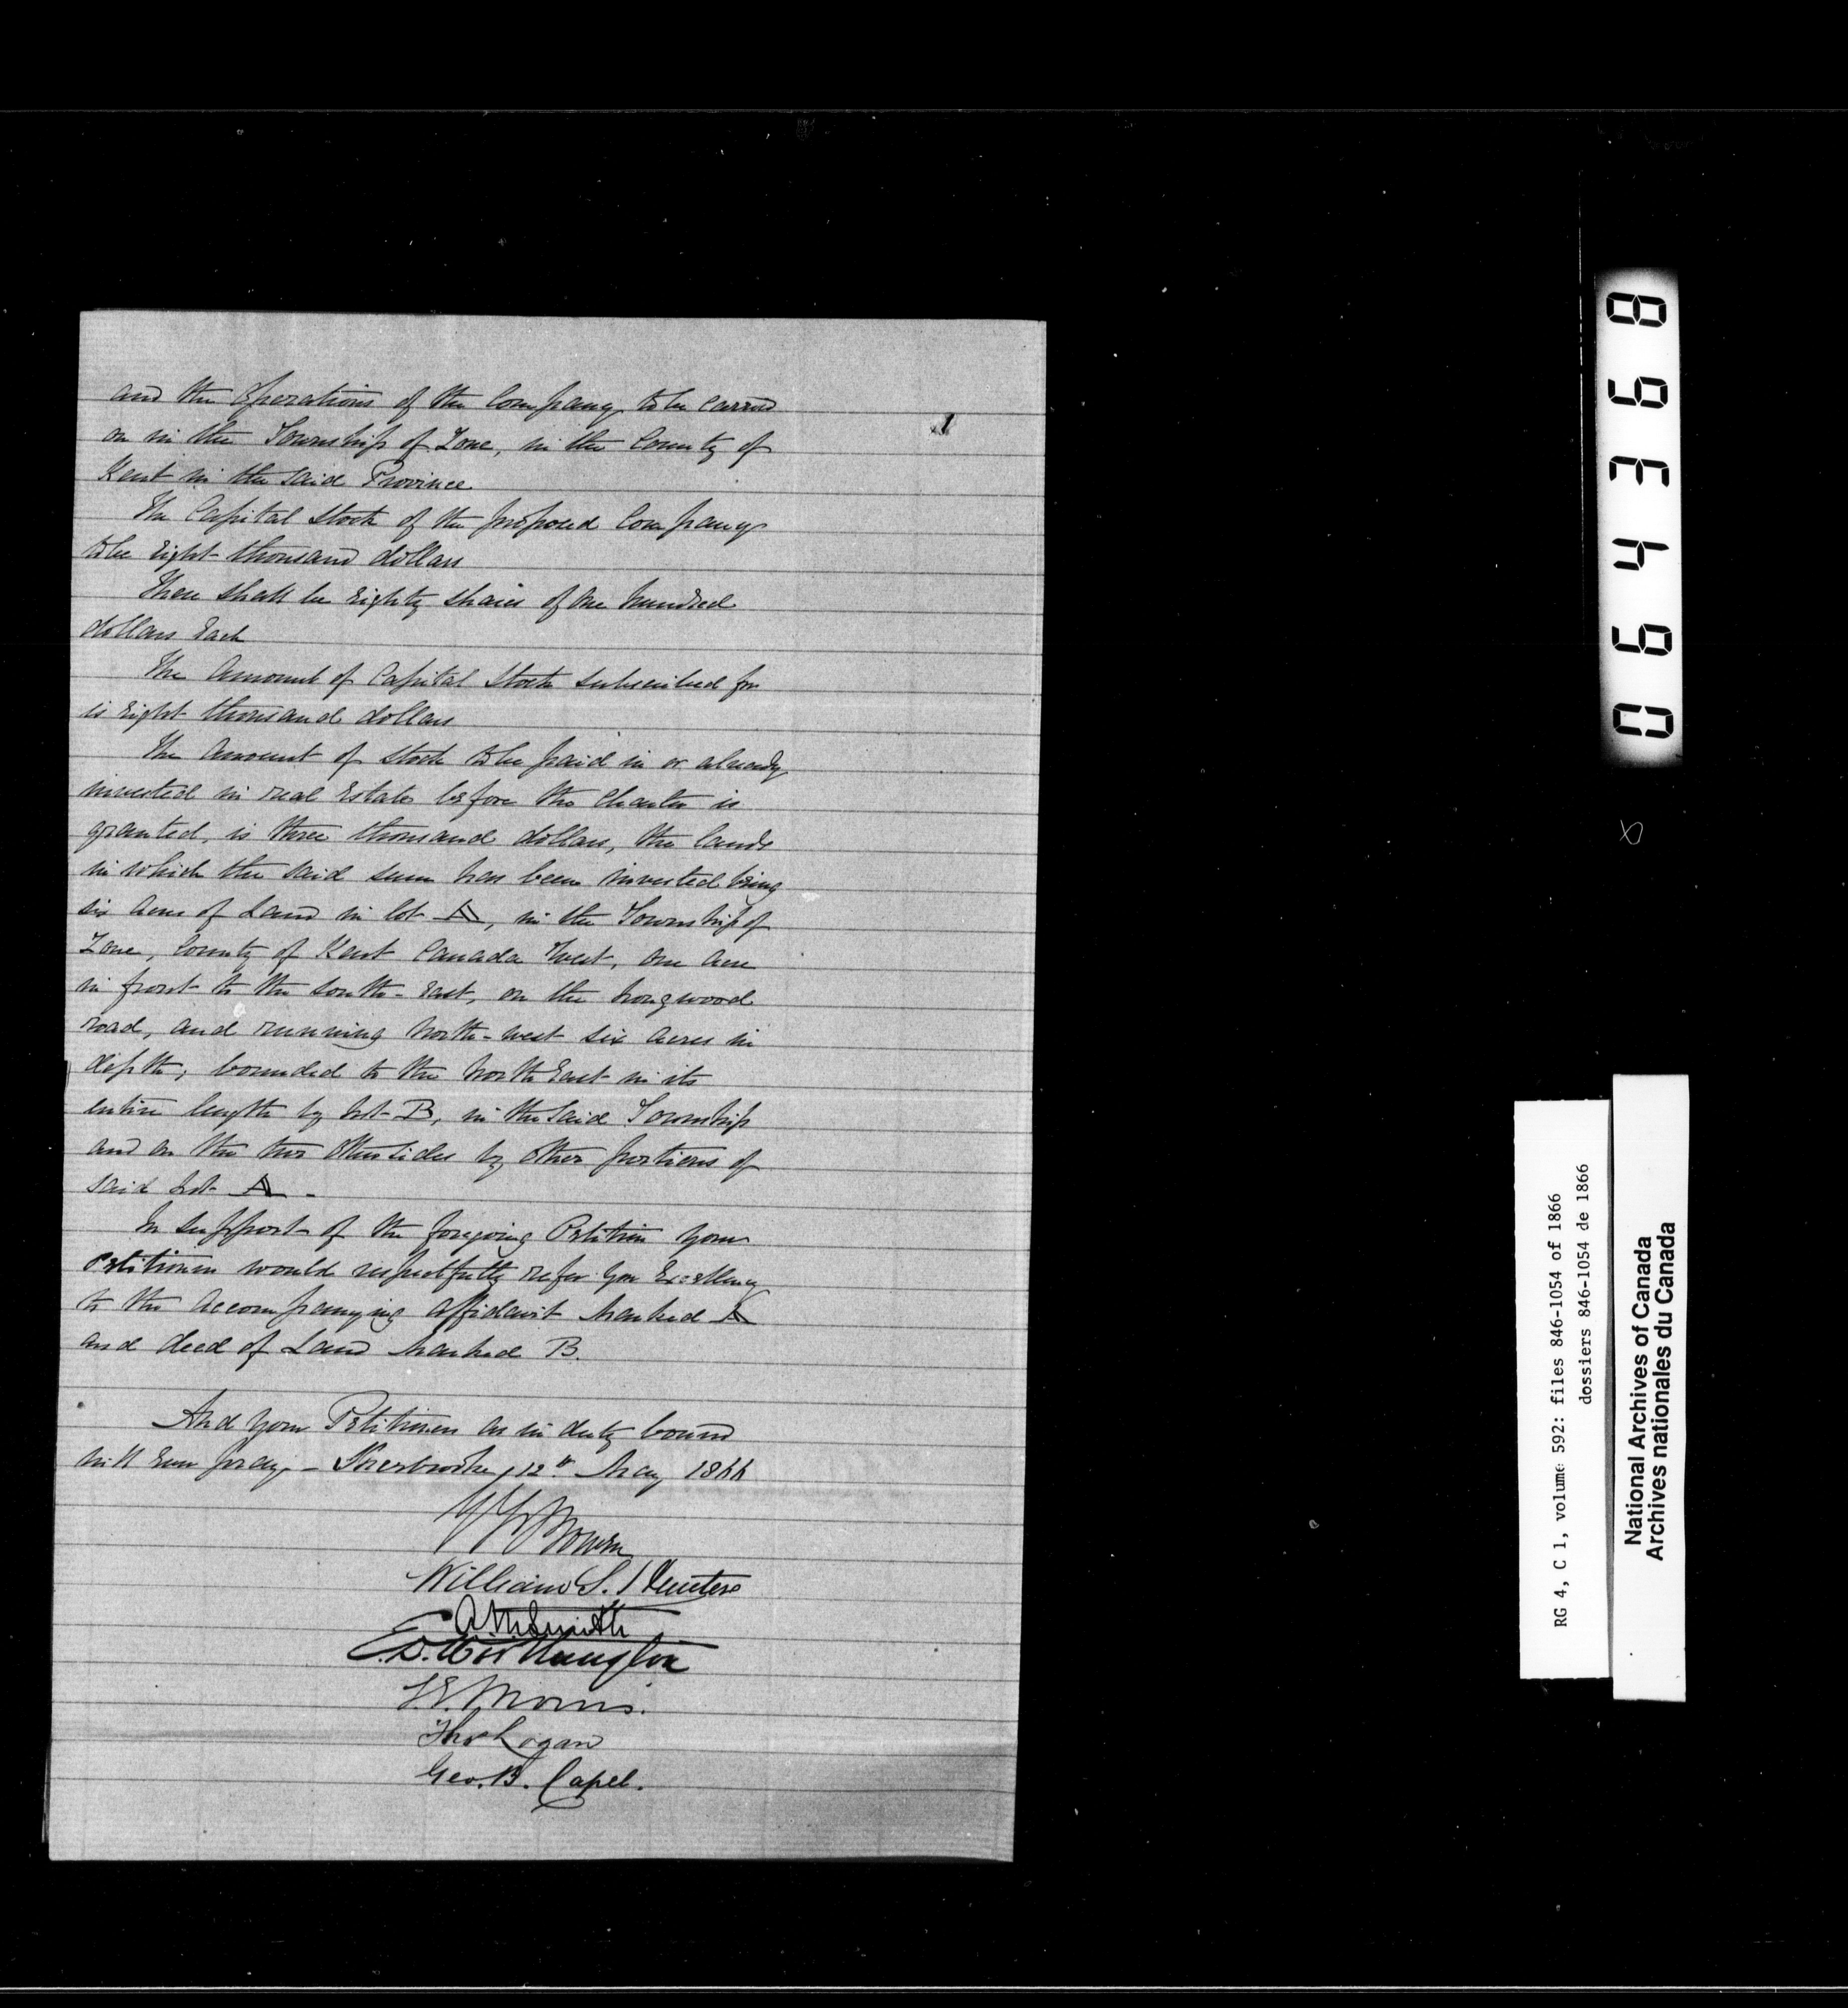 and the operations of the Company to be carried
on in the Township of Zone, in the County of
Kent in the said Province
The Capital Stock of the proposed Company
to be Eight thousand dollars
There shall be Eighty shares of One hundred
dollars Each
The Amount of Capital Stock subscribed for
is Eight thousand dollars
The Amount of Stock to be paid in or already
invested in real Estate before the Charter is
granted, is three thousand dollars, the lands
in which the said sum has been invested being
six acres of Land in lot A, in the Township of
Zone, County of Kent Canada West, one acre
in front to the South-East, on the Longwood
road, and running North-West six acres in
depth, bounded to the North East in its
entire length by lot B, in the said Township
and on the two other sides by other portions of
said lot A -
In support of the foregoing Petition your
Petitioners would respectfully refer your Excellency
to the accompanying affidavit Marked A
and deed of Land Marked B.
And your Petitioners as in duty bound
will Ever pray. - Sherbrooke, 12th May 1866
Bowen
William S. Hunter
A M Smith
E.D. Worthington
L.E. Morris.
Thos Logan
Geo. B. Capel.
064368
RG 4, C 1, volume 592: files 846-1054 of 1866
dossiers 846-1054 de 1866
National Archives of Canada
Archives nationales du Canada